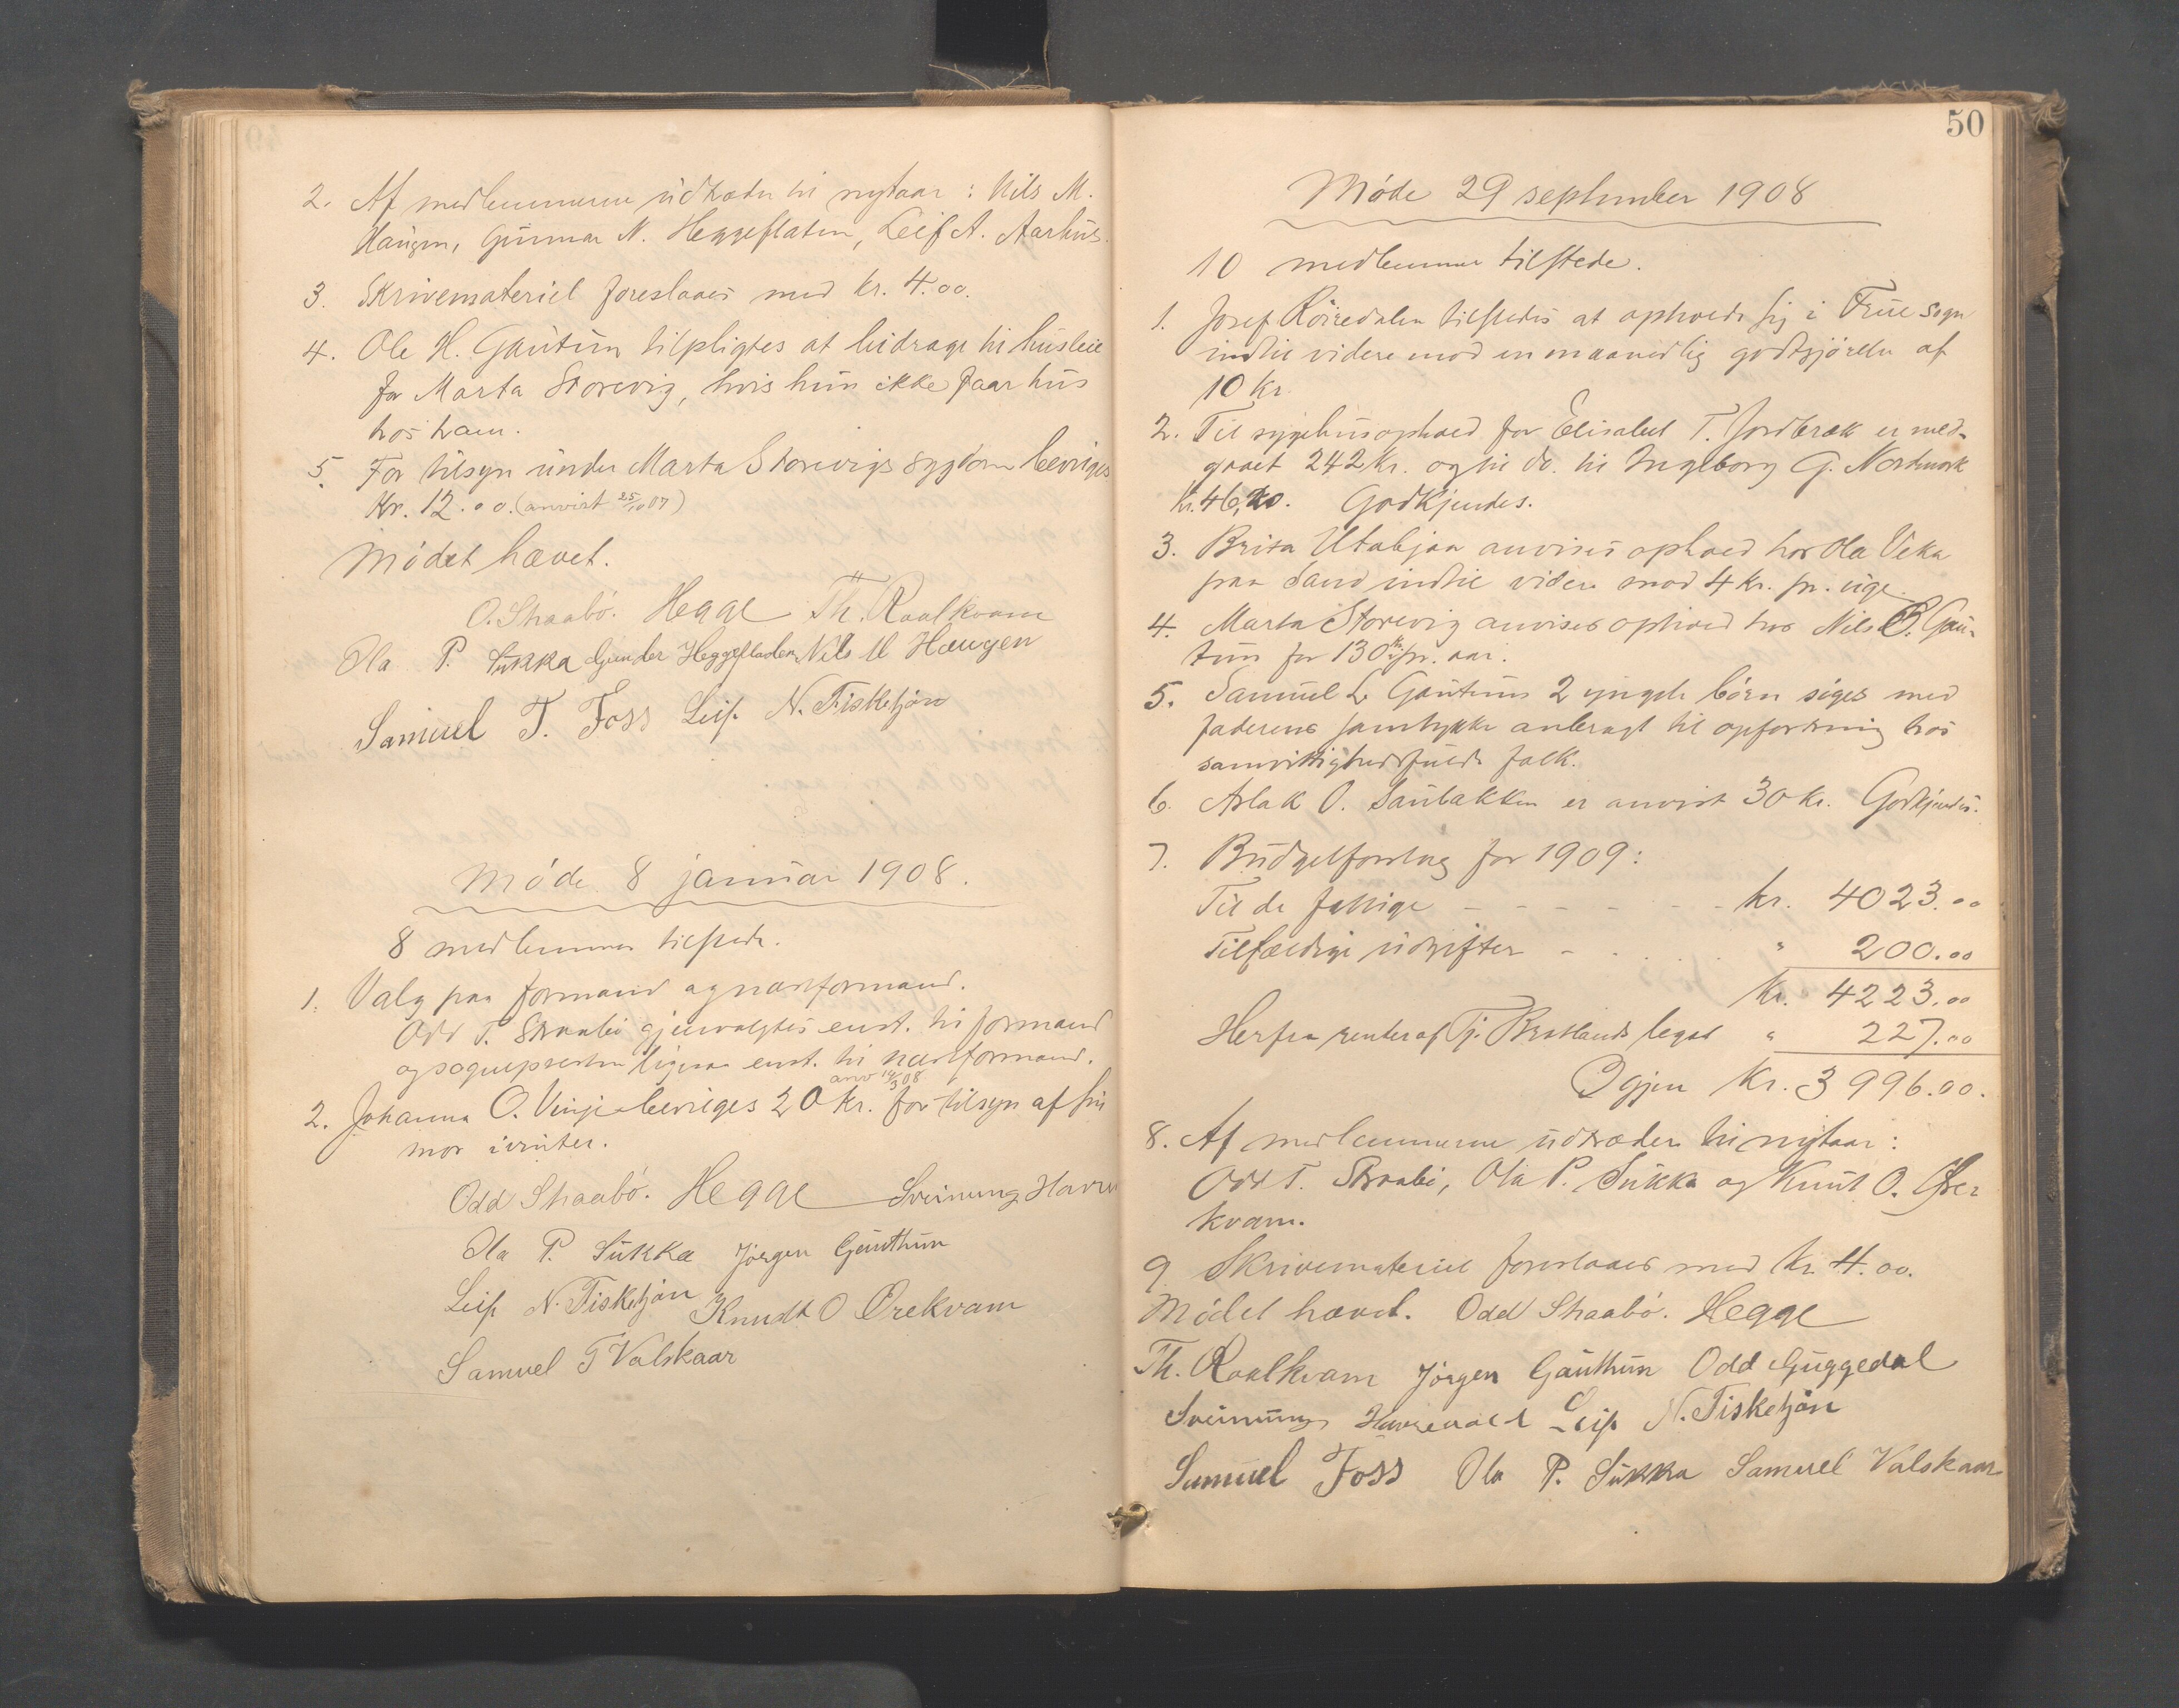 2. Af medlemmerne udtræder til nytaar: Nils M.
Haugen, Gunnar N. Heggeflaten, Leif A. Aarhus.
3. Skrivemateriel foreslaaes med kr. 4.00.
4. Ole H. Gautun tilpligtes at bidrage til husleie
for Marta Storevig, hvis hun ikke faar hus
hos ham.
5. For tilsyn under Marta Storevigs sygdom bevilges
Kr. 12.00. (anvist 25/10 07)
Mödet hævet.
O. Straabö. Hegge Th. Roalkvam
Ola P. Sukka Gunder Heggefladen Nils M Haugen
Samuel T. Foss Leif N. Fisketjön
Möde 8 januar 1908.
8 medlemmer tilstede.
1. Valg paa formand og næstformand.
Odd T. Straabö gjenvalgtes enst. til formand
og sognepresten ligesaa enst. til næstformand.
anv 14/3 08
2. Johanna O. Vinje bevilges 20 kr. for tilsyn af sin
mor ivinter.
Odd Straabö. Hegge Sveinung Havre
Ola P. Sukka Jörgen Gauthun
Leif N. Fisketjön Knudt O Ørekvam
Samuel T Valskaar
50
Möde 29 september 1908
10 medlemmer tilstede.
1. Josef Röiredalen tilstedes at opholde sig i Frue sogn
indtil videre mod en maanedlig godtgjörelse af
10 kr.
2. Til sygehusophold for Elisabet T. Jordbræk er med-
gaaet 242 kr. og til do. til Ingeborg G. Nordmork
kr. 46,20. Godkjendes.
3. Brita Utabjaa anvises ophold hos Ola Veka
paa Sand indtil videre mod 4 kr. pr. uge.
4. Marta Storevig anvises ophold hos Nils B. Gau-
tun for 130 kr. pr. aar.
5. Samuel L Gautuns 2 yngste börn söges med
faderens samtykke anbragt til opfostring hos
samvittighedsfulde folk.
6. Aslak O. Saubakken er anvist 30 kr. Godkjendes.
7. Budgetforslag for 1909:
Til de fattige - - - - - - - kr. 4023.00
Tilfældige udgifter - - . . . . " 200.00
Kr. 4223.00
Herfra renter af Tj. Bratlands legat " 227.00
Igjen Kr. 3996.00.
8. Af medlemmerne udtræder til nytaar:
Odd T. Straabö, Ola P. Sukka og Knut O. Øre
kvam.
9 Skrivemateriel foreslaaes med kr. 4.00.
Mödet hævet. Odd Straabö. Hegge
Th. Roalkvam Jörgen Gauthun Odd Guggedal
Sveinung Havrevold Leif N. Fisketjön
Samuel Foss Ola P. Sukka Samuel Valskaar